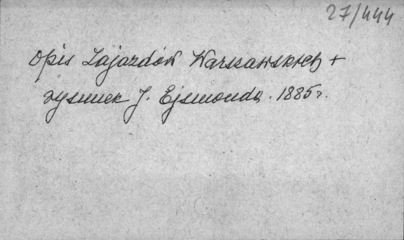 27/444
Opis Zajazdów Warszawskich +
rysunek J. Ejsmonda. 1885r.